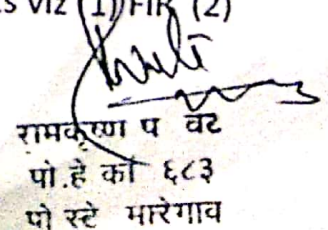 s viz (1) FIR (2)
रामकृष्ण प वट
पो.हे कॉ ६८३
पो स्टे मारेगाव